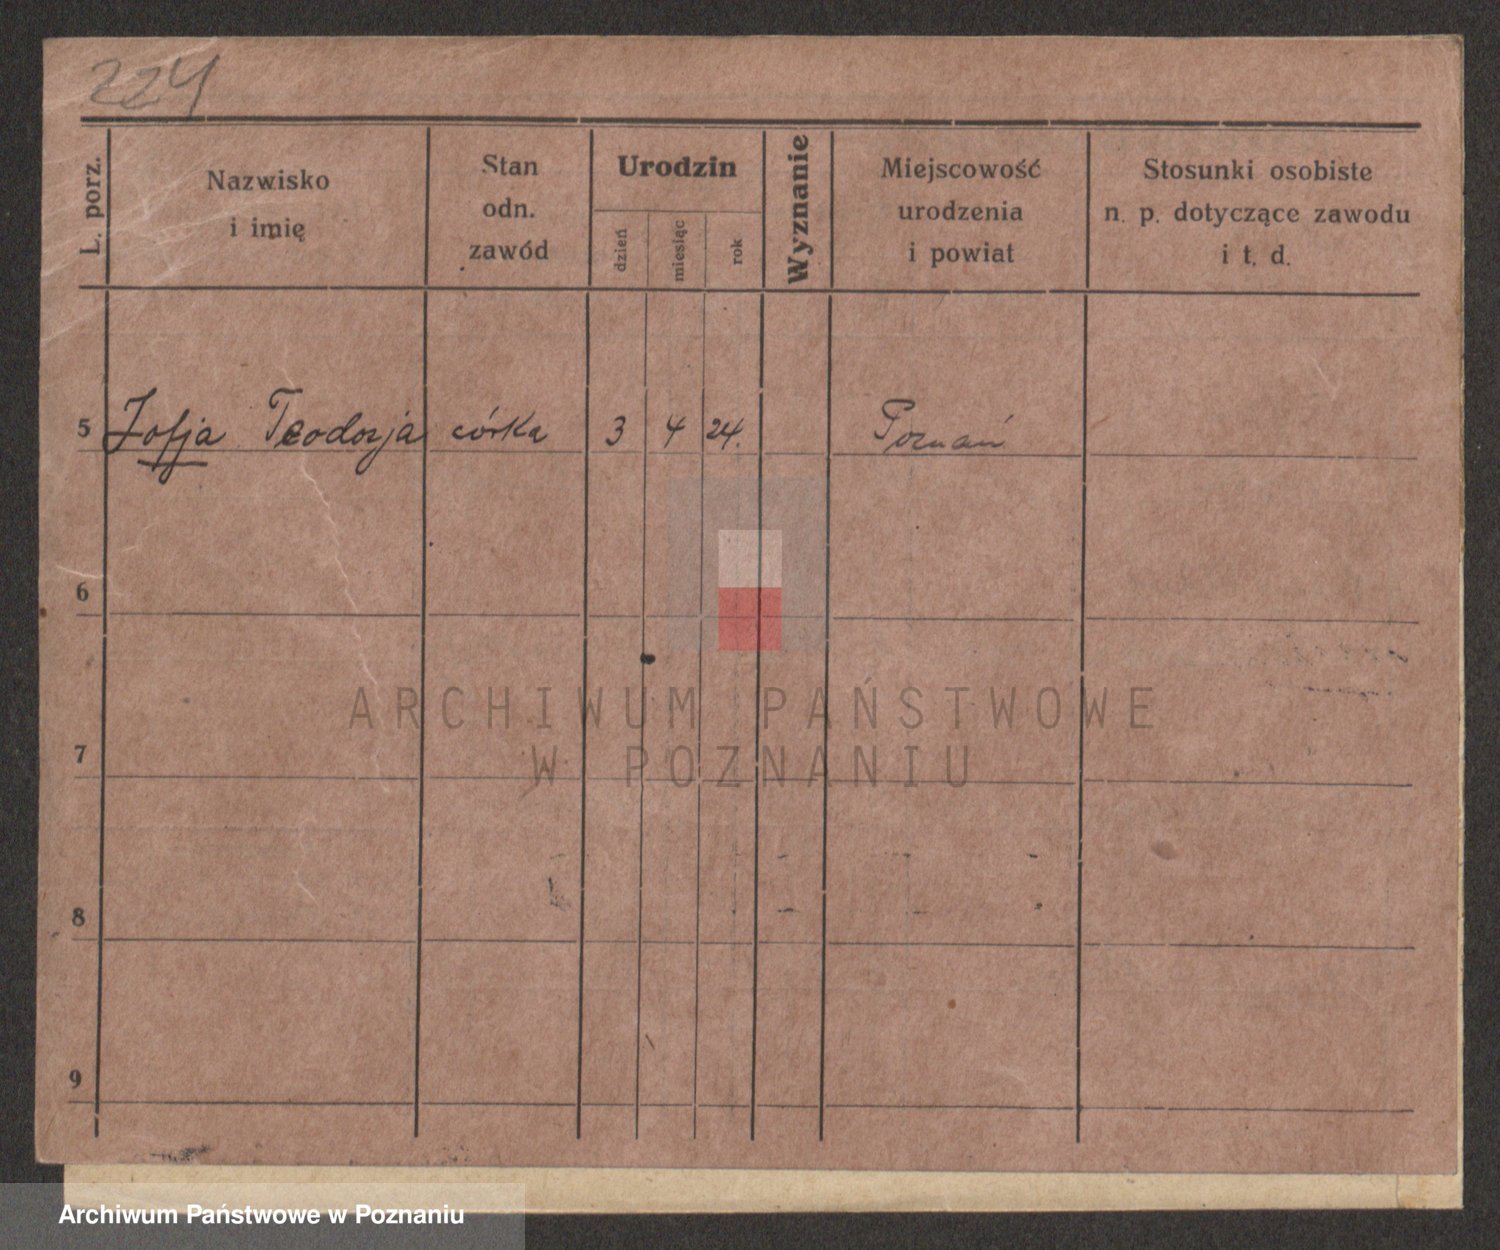 224
L. porz.
Nazwisko
i imię
Stan
odn.
zawód
Urodzin
dzień
miesiąc
rok
Wyznanie
Miejscowość
urodzenia
i powiat
Stosunki osobiste
n. p. dotyczące zawodu
i t. d.
5 Zofja Teodozja córka 3 4 24. Poznań
6
7
8
9
ARCHIWUM PAŃSTWOWE
W POZNANIU
Archiwum Państwowe w Poznaniu